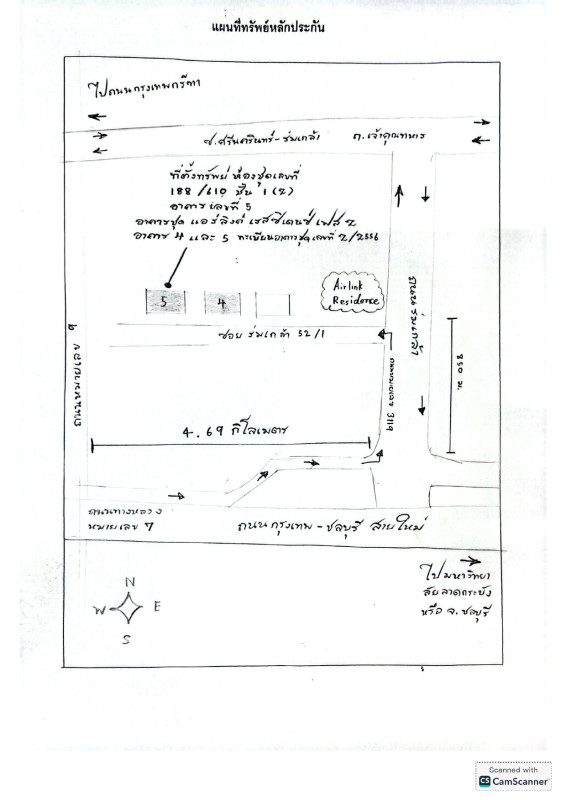 แผนที่ทรัพย์หลักประกัน
ไปถนนกรุงเทพกรีฑา
ซ.ศรีนครินทร์-ร่มเกล้า
ถ.เจ้าคุณทหาร
ที่ตั้งทรัพย์ ห้องชุดเลขที่
188/610 ชั้น 1 (2)
อาคารเลขที่ 5
อาคารชุด แอร์ลิงค์ เรสซิเดนซ์ เฟส 2
อาคาร 4 และ 5 ทะเบียนอาคารชุดเลขที่ 2/2556
5
4
Airlink
Residence
ถนนร่มเกล้า
ซอย ร่มเกล้า 52/1
850 ม.
3119
4.69 กิโลเมตร
ถนนทางหลวง
หมายเลข 7
ถนนกรุงเทพ-ชลบุรี สายใหม่
ไปมหาวิทยา
ลัยลาดกระบัง
หรือ จ.ชลบุรี
N
W
E
S
Scanned with
CS CamScanner